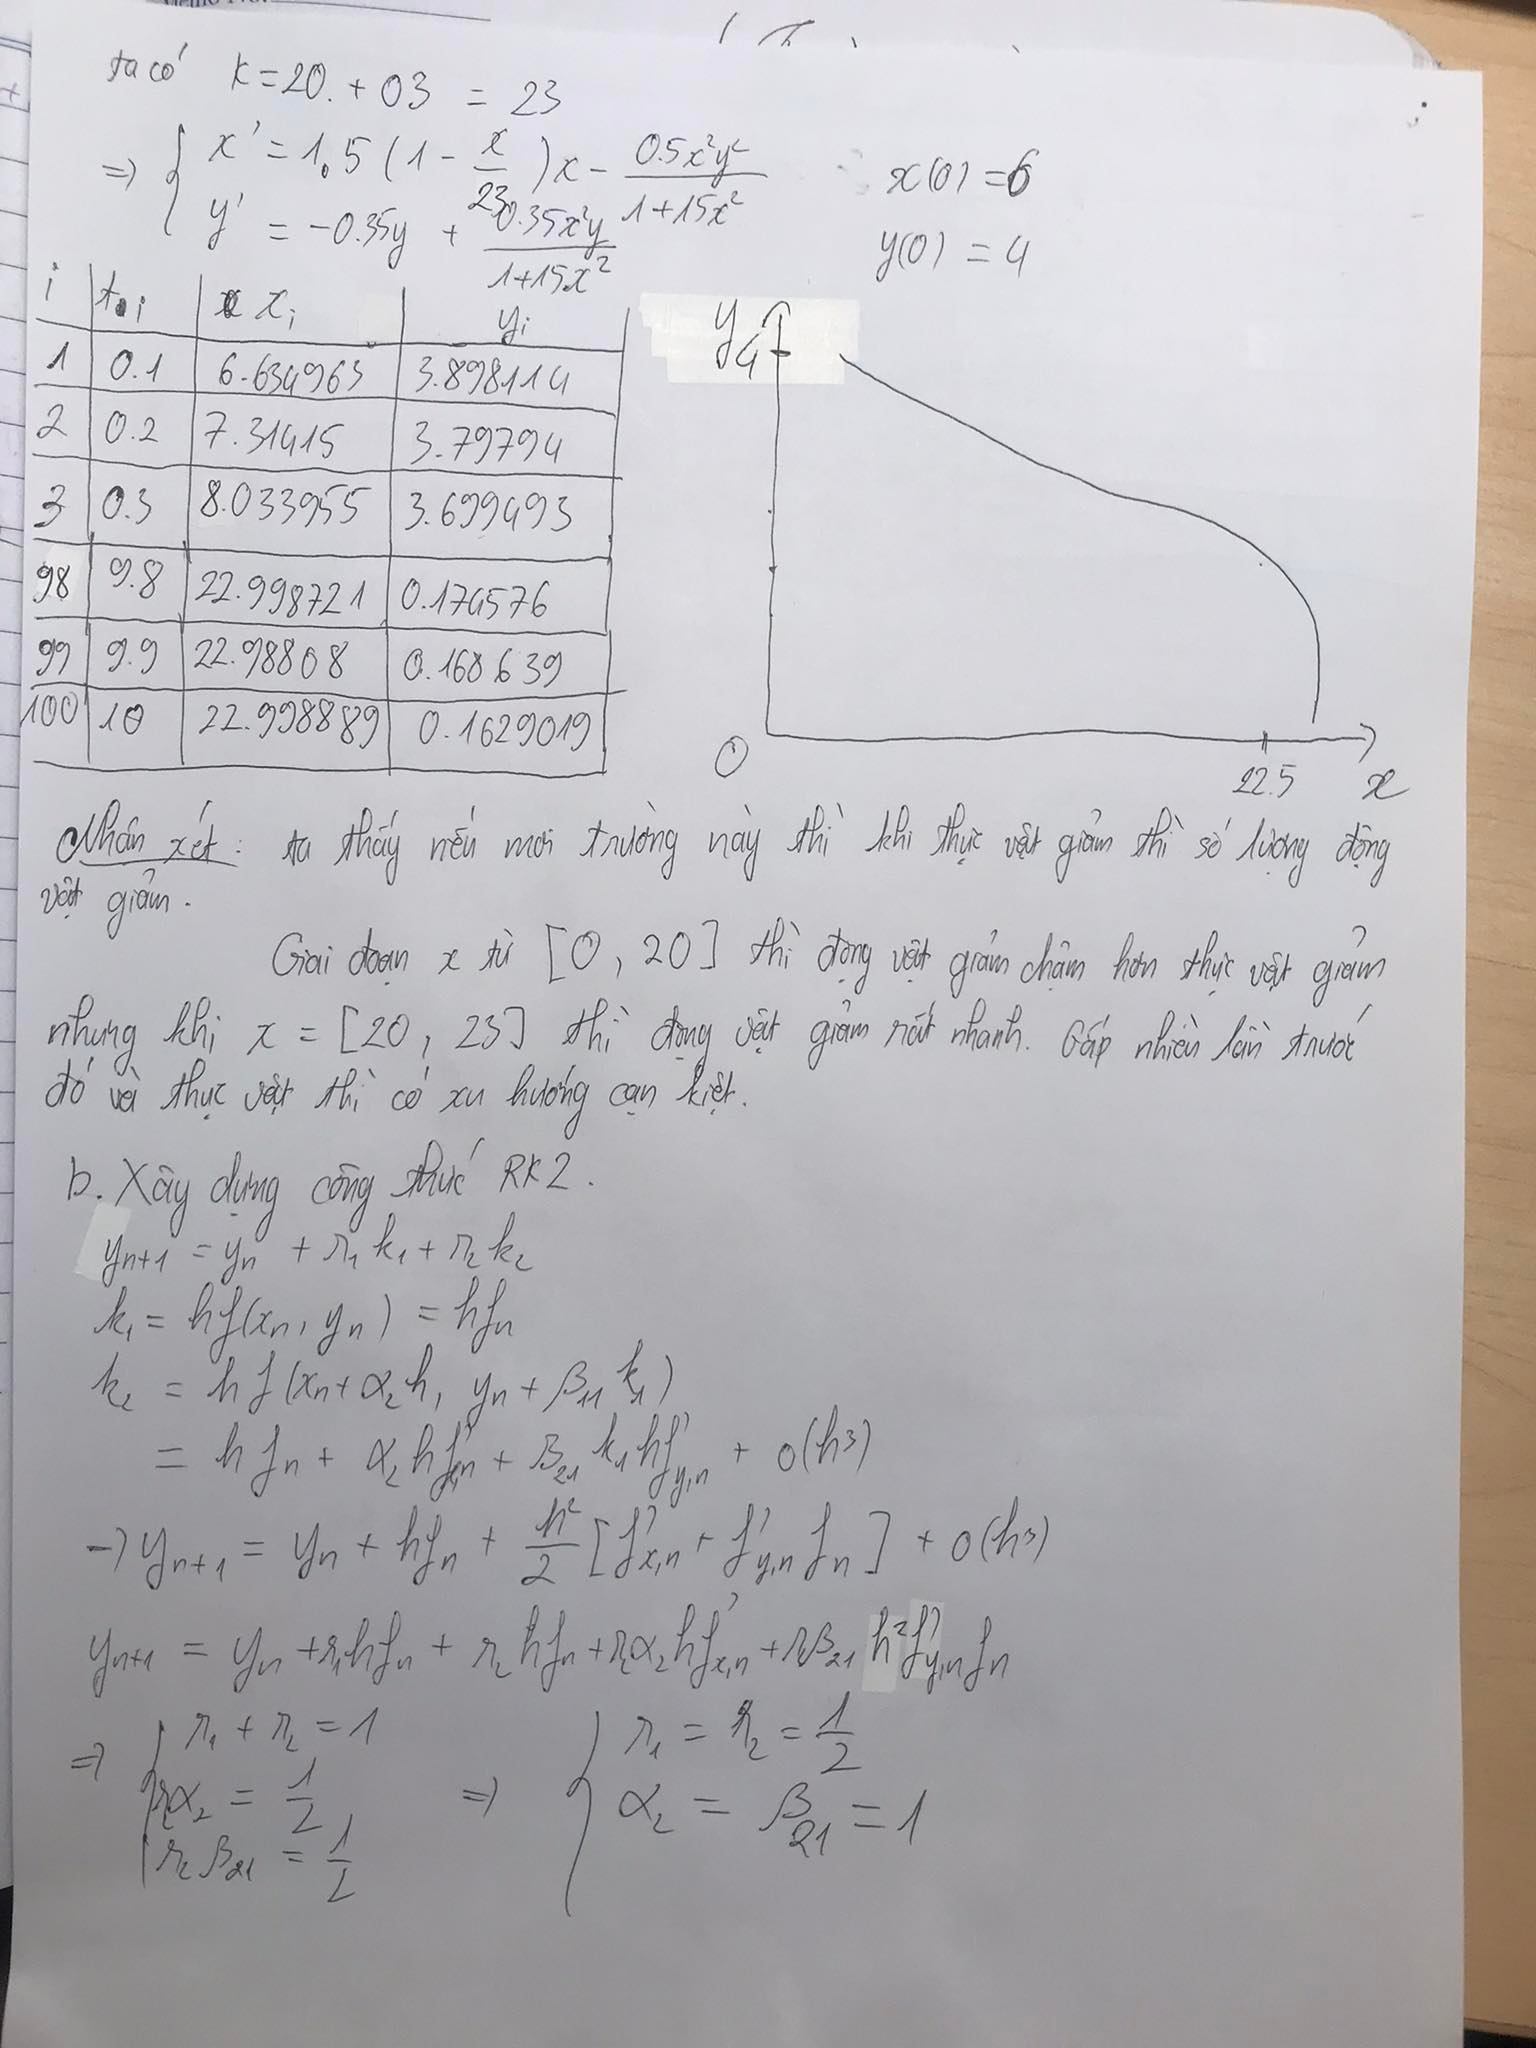 ta có k = 20 + 03 = 23
=> { x' = 1.5 (1 - x/23) x - 0.5x²y²/(1+15x²) x(0) = 6
y' = -0.35y + 0.35x²y/(1+15x²) y(0) = 4
i | t i | x i | y i
1 | 0.1 | 6.634963 | 3.898114
2 | 0.2 | 7.31415 | 3.79794
3 | 0.3 | 8.033955 | 3.699493
98 | 9.8 | 22.998721 | 0.174576
99 | 9.9 | 22.98808 | 0.168639
100 | 10 | 22.998889 | 0.1629019
y
4
O
22.5
x
Nhận xét: ta thấy nếu môi trường này thì khi thực vật giảm thì số lượng động
vật giảm.
Giai đoạn x từ [0, 20] thì động vật giảm chậm hơn thực vật giảm
nhưng khi x = [20, 23] thì động vật giảm rất nhanh. Gấp nhiều lần trước
đó và thực vật thì có xu hướng cạn kiệt.
b. Xây dựng công thức RK2.
yn+1 = yn + r1 k1 + r2 k2
k1 = hf(xn, yn) = hfn
k2 = hf(xn + α2h, yn + β11 k1)
= hfn + α2 hf'x,n + β21 k1 hf'y,n + o(h3)
-> yn+1 = yn + hfn + h²/2 [f'x,n + f'y,n fn] + o(h3)
yn+1 = yn + r1hfn + r2 hfn + r2α2 hf'x,n + r2β21 h²f'y,n fn
=> { r1 + r2 = 1
r2α2 = 1/2
r2 β21 = 1/2
=> { r1 = r2 = 1/2
α2 = β21 = 1